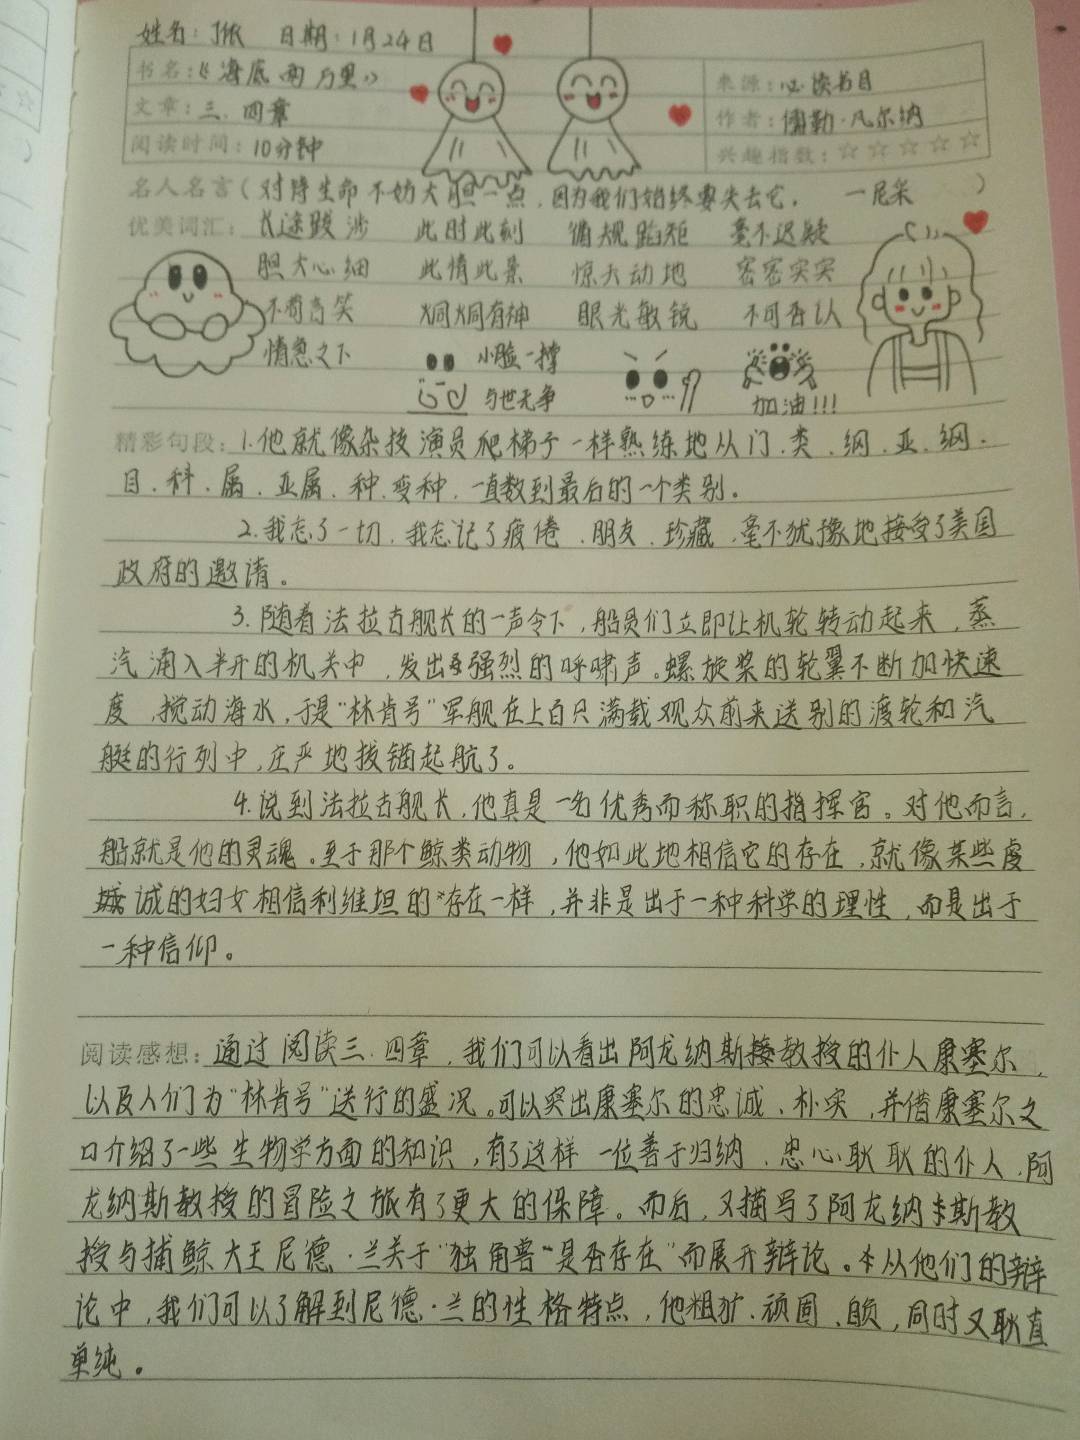 姓名：丁依 日期：1月24日
书名：《海底两万里》 来源：必读书目
文章：三、四章 作者：儒勒·凡尔纳
阅读时间：10分钟 兴趣指数：☆☆☆☆☆
名人名言（对待生命不妨大胆一点，因为我们始终要失去它。 —尼采 ）
优美词汇：长途跋涉 此时此刻 循规蹈矩 毫不迟疑
胆大心细 此情此景 惊天动地 密密实实
不苟言笑 炯炯有神 眼光敏锐 不可否认
情急之下 小脸一撑
与世无争 加油!!!
精彩句段：1.他就像杂技演员爬梯子一样熟练地从门、类、纲、亚、纲、
目、科、属、亚属、种、变种，一直数到最后的一个类别。
2.我忘了一切，我忘记了疲倦、朋友、珍藏，毫不犹豫地接受了美国
政府的邀请。
3.随着法拉古舰长的一声令下，船员们立即让机轮转动起来，蒸
汽涌入半开的机关中，发出强烈的呼啸声。螺旋桨的轮翼不断加快速
度，搅动海水，于是“林肯号”军舰在上百只满载观众前来送别的渡轮和汽
艇的行列中，庄严地拔锚起航了。
4.说到法拉古舰长，他真是一名优秀而称职的指挥官。对他而言，
船就是他的灵魂。至于那个鲸类动物，他如此地相信它的存在，就像某些虔
诚的妇女相信利维坦的存在一样，并非是出于一种科学的理性，而是出于
一种信仰。
阅读感想：通过阅读三、四章，我们可以看出阿龙纳斯教授的仆人康塞尔，
以及人们为“林肯号”送行的盛况。可以突出康塞尔的忠诚、朴实，并借康塞尔之
口介绍了一些生物学方面的知识，有了这样一位善于归纳、忠心耿耿的仆人，阿
龙纳斯教授的冒险之旅有了更大的保障。而后，又描写了阿龙纳斯教
授与捕鲸大王尼德·兰关于“独角兽“是否存在”而展开辩论。从他们的辩
论中，我们可以了解到尼德·兰的性格特点，他粗犷、顽固、自负，同时又耿直
单纯。